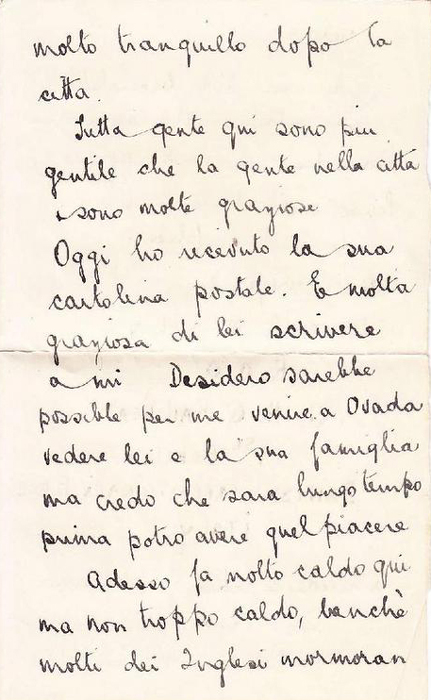 molto tranquillo dopo la
citta.
Tutta gente qui sono piu
gentile che la gente nella citta
e sono molte grayiose
Oggi ho recevuto la sua
cartolina postale. E molta
grayiosa di lei scrivere
a mi Desidero sarebbe
possible per me venire a Ovada
vedere lei e la sua famiglia
ma credo che sara lungo tempo
prima potro avere quel piacere
Adesso fa molto caldo qui
ma non troppo caldo, banchè
molti dei Inglesi mormoran